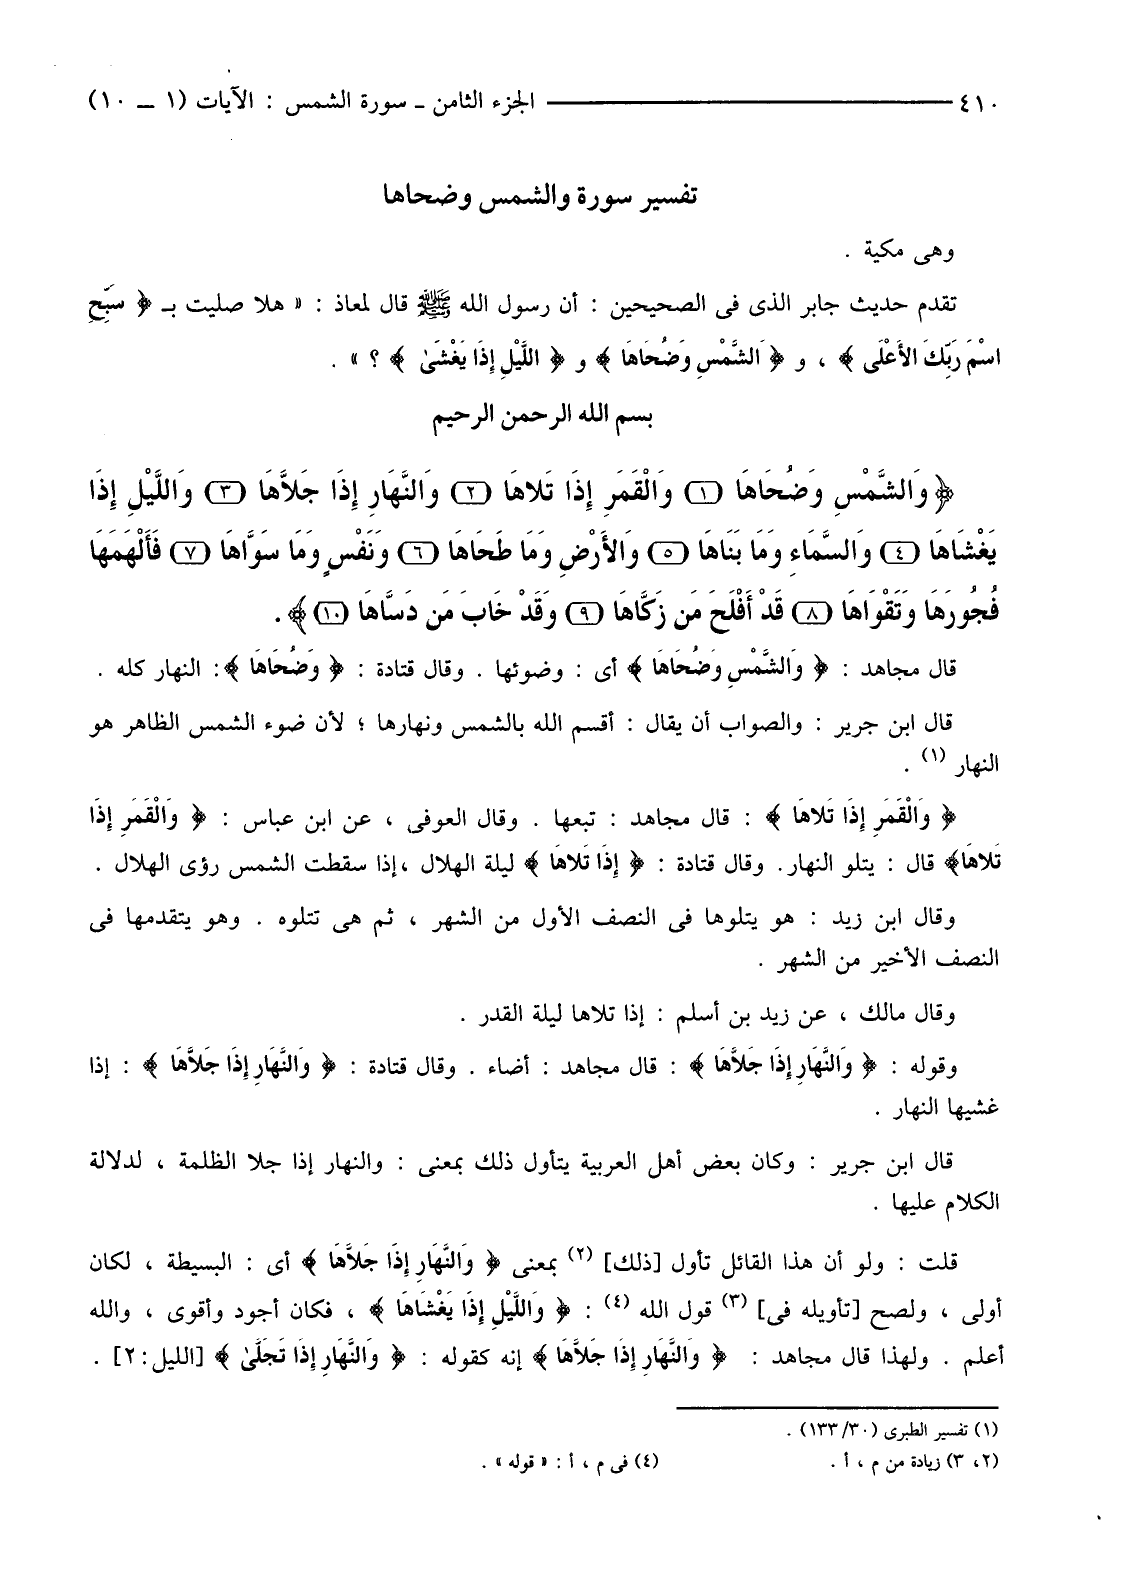 ٤١٠ ــــــــ الجزء الثامن ـ سورة الشمس : الآيات (١ ــ ١٠)
تفسير سورة والشمس وضحاها
وهى مكية .
تقدم حديث جابر الذى فى الصحيحين : أن رسول الله ﷺ قال لمعاذ : « هلا صليت بـ ﴿ سَبِّحِ
اسْمَ رَبِّكَ الأَعْلَى ﴾ ، و ﴿ الشَّمْسِ وَضُحَاهَا ﴾ و ﴿ اللَّيْلِ إِذَا يَغْشَىٰ ﴾ ؟ » .
بسم الله الرحمن الرحيم
﴿ وَالشَّمْسِ وَضُحَاهَا (١) وَالْقَمَرِ إِذَا تَلاهَا (٢) وَالنَّهَارِ إِذَا جَلاَّهَا (٣) وَاللَّيْلِ إِذَا
يَغْشَاهَا (٤) وَالسَّمَاءِ وَمَا بَنَاهَا (٥) وَالأَرْضِ وَمَا طَحَاهَا (٦) وَنَفْسٍ وَمَا سَوَّاهَا (٧) فَأَلْهَمَهَا
فُجُورَهَا وَتَقْوَاهَا (٨) قَدْ أَفْلَحَ مَن زَكَّاهَا (٩) وَقَدْ خَابَ مَن دَسَّاهَا (١٠) ﴾ .
قال مجاهد : ﴿ وَالشَّمْسِ وَضُحَاهَا ﴾ أى : وضوئها . وقال قتادة : ﴿ وَضُحَاهَا ﴾: النهار كله .
قال ابن جرير : والصواب أن يقال : أقسم الله بالشمس ونهارها ؛ لأن ضوء الشمس الظاهر هو
النهار (١) .
﴿ وَالْقَمَرِ إِذَا تَلاهَا ﴾ : قال مجاهد : تبعها . وقال العوفى ، عن ابن عباس : ﴿ وَالْقَمَرِ إِذَا
تَلاهَا﴾ قال : يتلو النهار. وقال قتادة : ﴿ إِذَا تَلاهَا ﴾ ليلة الهلال ،إذا سقطت الشمس رؤى الهلال .
وقال ابن زيد : هو يتلوها فى النصف الأول من الشهر ، ثم هى تتلوه . وهو يتقدمها فى
النصف الأخير من الشهر .
وقال مالك ، عن زيد بن أسلم : إذا تلاها ليلة القدر .
وقوله : ﴿ وَالنَّهَارِ إِذَا جَلاَّهَا ﴾ : قال مجاهد : أضاء . وقال قتادة : ﴿ وَالنَّهَارِ إِذَا جَلاَّهَا ﴾ : إذا
غشيها النهار .
قال ابن جرير : وكان بعض أهل العربية يتأول ذلك بمعنى : والنهار إذا جلا الظلمة ، لدلالة
الكلام عليها .
قلت : ولو أن هذا القائل تأول [ذلك] (٢) بمعنى ﴿ وَالنَّهَارِ إِذَا جَلاَّهَا ﴾ أى : البسيطة ، لكان
أولى ، ولصح [تأويله فى] (٣) قول الله (٤) : ﴿ وَاللَّيْلِ إِذَا يَغْشَاهَا ﴾ ، فكان أجود وأقوى ، والله
أعلم . ولهذا قال مجاهد : ﴿ وَالنَّهَارِ إِذَا جَلاَّهَا ﴾ إنه كقوله : ﴿ وَالنَّهَارِ إِذَا تَجَلَّىٰ ﴾ [الليل:٢] .
(١) تفسير الطبرى (٣٠/ ١٣٣) .
(٢، ٣) زيادة من م ، أ . (٤) فى م ، أ : « قوله » .